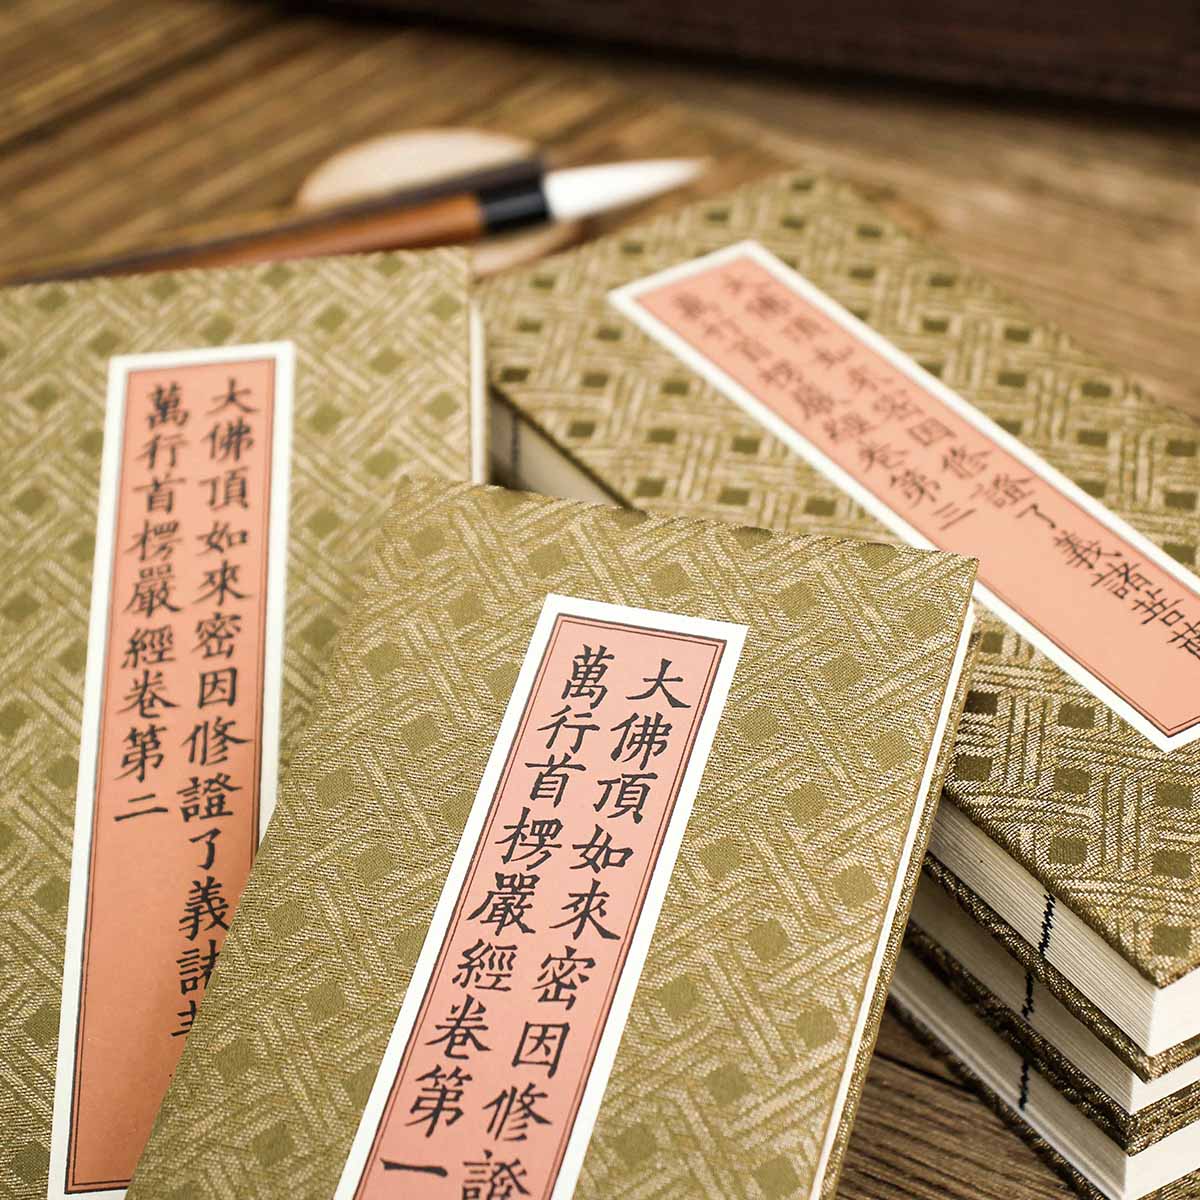 大佛頂如來密因修證了義諸
萬行首楞嚴經卷第二
大佛頂如來密因修證
萬行首楞嚴經卷第一
大佛頂如來密因修證了義諸菩
萬行首楞嚴經卷第三